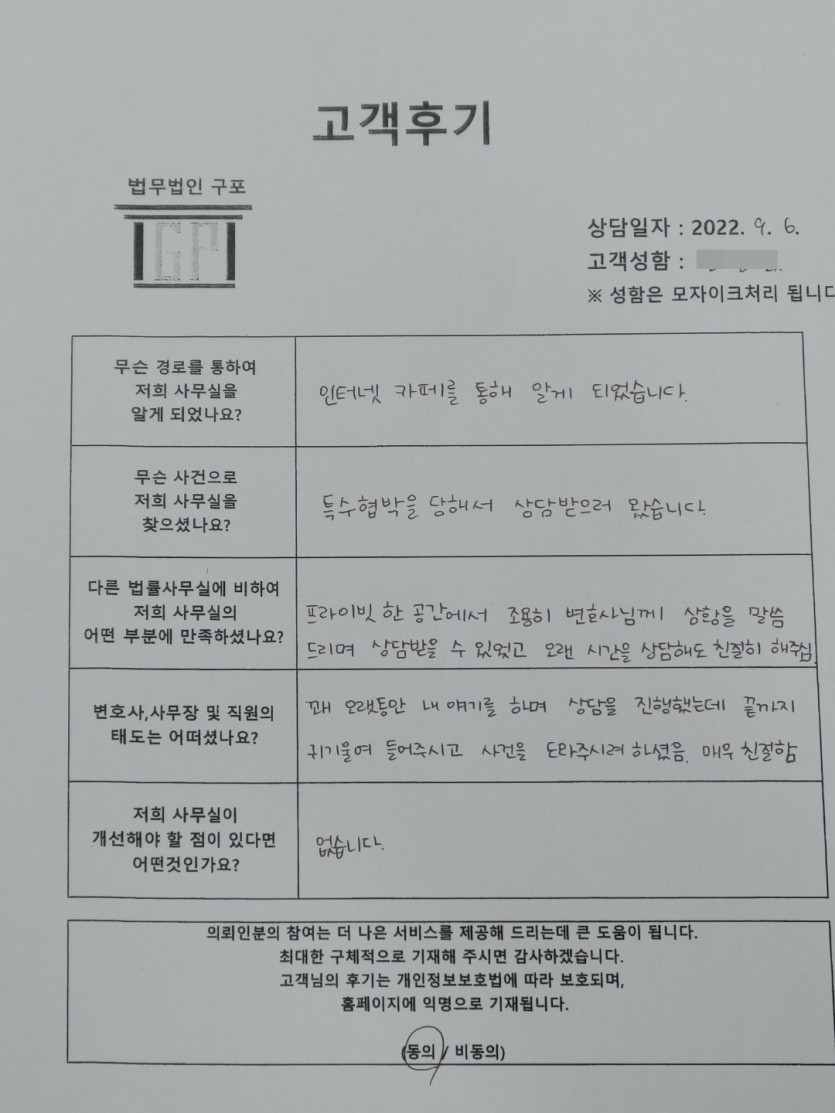 고객후기
법무법인 구포
GP
상담일자 : 2022. 9. 6.
고객성함 :
※ 성함은 모자이크처리 됩니다
무슨 경로를 통하여
저희 사무실을
알게 되었나요?
인터넷 카페를 통해 알게 되었습니다.
무슨 사건으로
저희 사무실을
찾으셨나요?
특수협박을 당해서 상담받으러 왔습니다.
다른 법률사무실에 비하여
저희 사무실의
어떤 부분에 만족하셨나요?
프라이빗 한 공간에서 조용히 변호사님께 상황을 말씀
드리며 상담받을 수 있었고 오랜 시간을 상담해도 친절히 해주심.
변호사,사무장 및 직원의
태도는 어떠셨나요?
꽤 오랫동안 내 얘기를 하며 상담을 진행했는데 끝까지
귀기울여 들어주시고 사건을 도와주시려 하셨음. 매우 친절함
저희 사무실이
개선해야 할 점이 있다면
어떤것인가요?
없습니다.
의뢰인분의 참여는 더 나은 서비스를 제공해 드리는데 큰 도움이 됩니다.
최대한 구체적으로 기재해 주시면 감사하겠습니다.
고객님의 후기는 개인정보보호법에 따라 보호되며,
홈페이지에 익명으로 기재됩니다.
(동의 / 비동의)